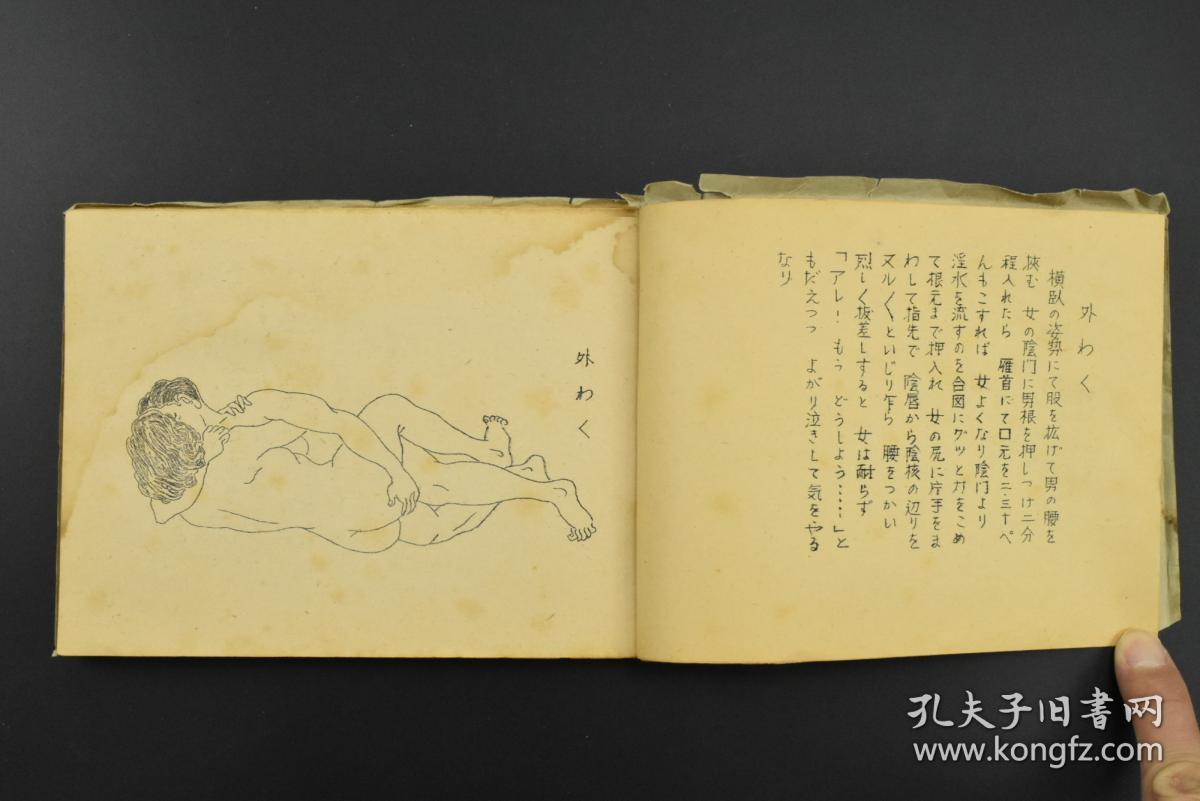 外わく
横臥の姿勢にて股を拡げて男の腰を
挾む 女の陰門に男根を押しつけ二分
程入れたら 雁首にて口元を二、三十ペ
んもこすれば 女よくなり陰門より
淫水を流すのを合図にグッと力をこめ
て根元まで押入れ 女の尻に片手をま
わして指先で 陰唇から陰核の辺りを
ヌル〱といじり乍ら 腰をつかい
烈しく抜差しすると 女は耐らず
「アレー もう どうしよう……」と
もだえつつ よがり泣きして気をやる
なり
外わく
孔夫子旧书网
www.kongfz.com